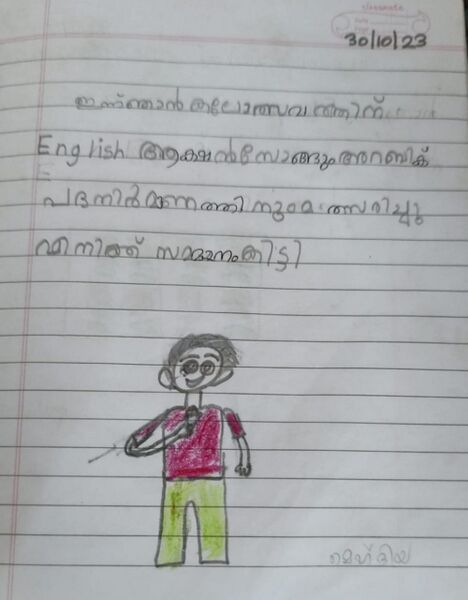 classmate
Date
Page
30/10/23
ഇന്ന് ഞാൻ കലോത്സവത്തിന്
English ആക്ഷൻ സോങ്ങും അറബിക്
പദനിർമ്മാണത്തിനും മത്സരിച്ചു
എനിക്ക് സമ്മാനം കിട്ടി
മെഹ്ദിയ